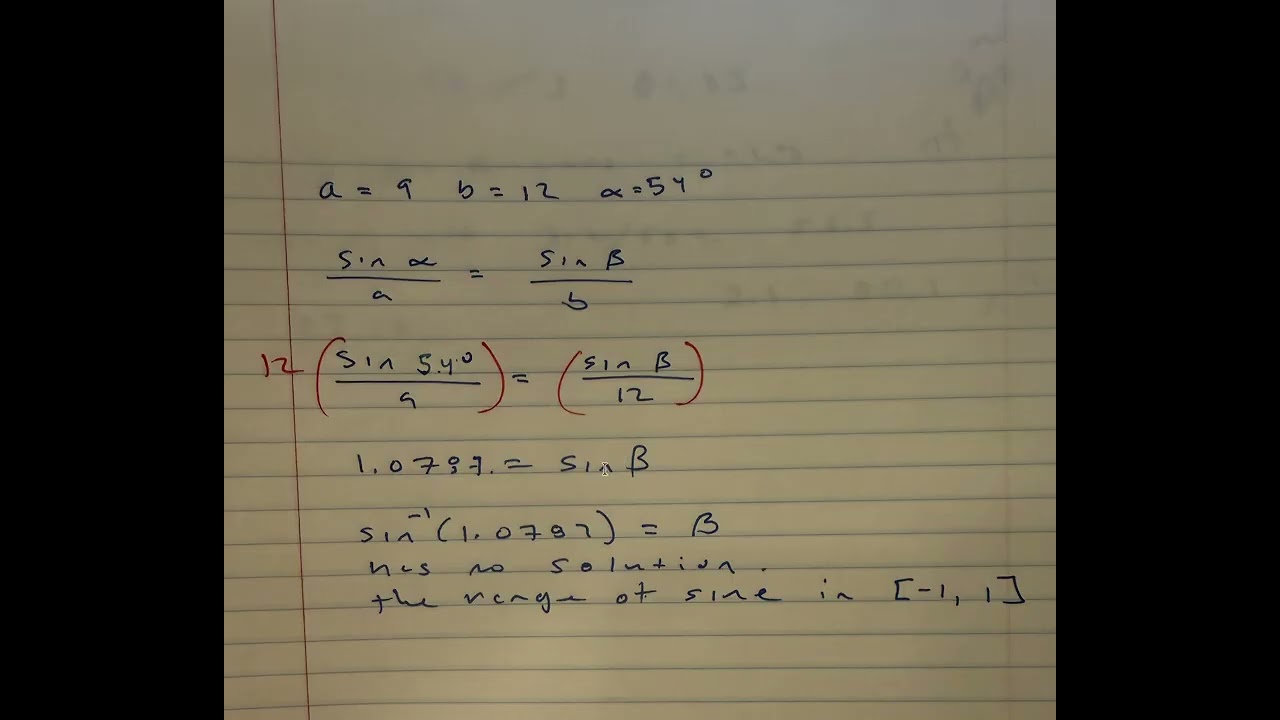 a = 9 b = 12 α = 54°
sin α / a = sin β / b
12 ( sin 54° / 9 ) = ( sin β / 12 )
1.0787. = sin β
sin⁻¹(1.0787) = β
has no solution.
the range of sine in [-1, 1]